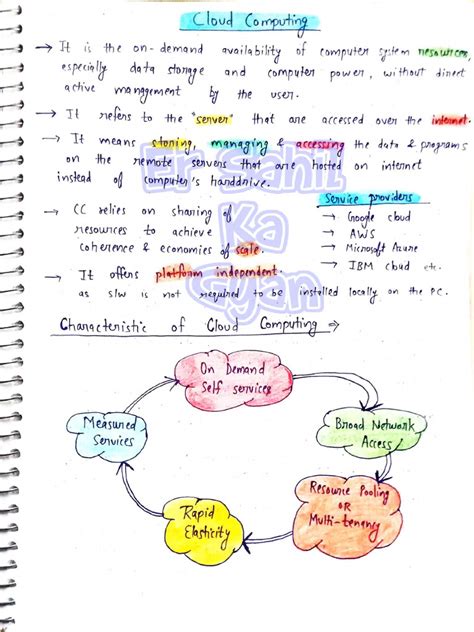 Cloud Computing
→ It is the on-demand availability of computer system resources,
especially data storage and computer power, without direct
active management by the user.
→ It refers to the "server" that are accessed over the internet.
→ It means storing, managing & accessing the data & programs
on the remote servers that are hosted on internet
instead of computer's harddrive.
Service providers
→ Google cloud
→ AWS
→ Microsoft Azure
→ IBM cloud etc.
→ CC relies on sharing of
resources to achieve
coherence & economies of scale.
→ It offers platform independent.
as s/w is not required to be installed locally on the PC.
Er Sahil
Ka
Gyan
Characteristic of Cloud Computing ⇒
On Demand
Self services
Broad Network
Access
Resource Pooling
OR
Multi-tenancy
Rapid
Elasticity
Measured
Services